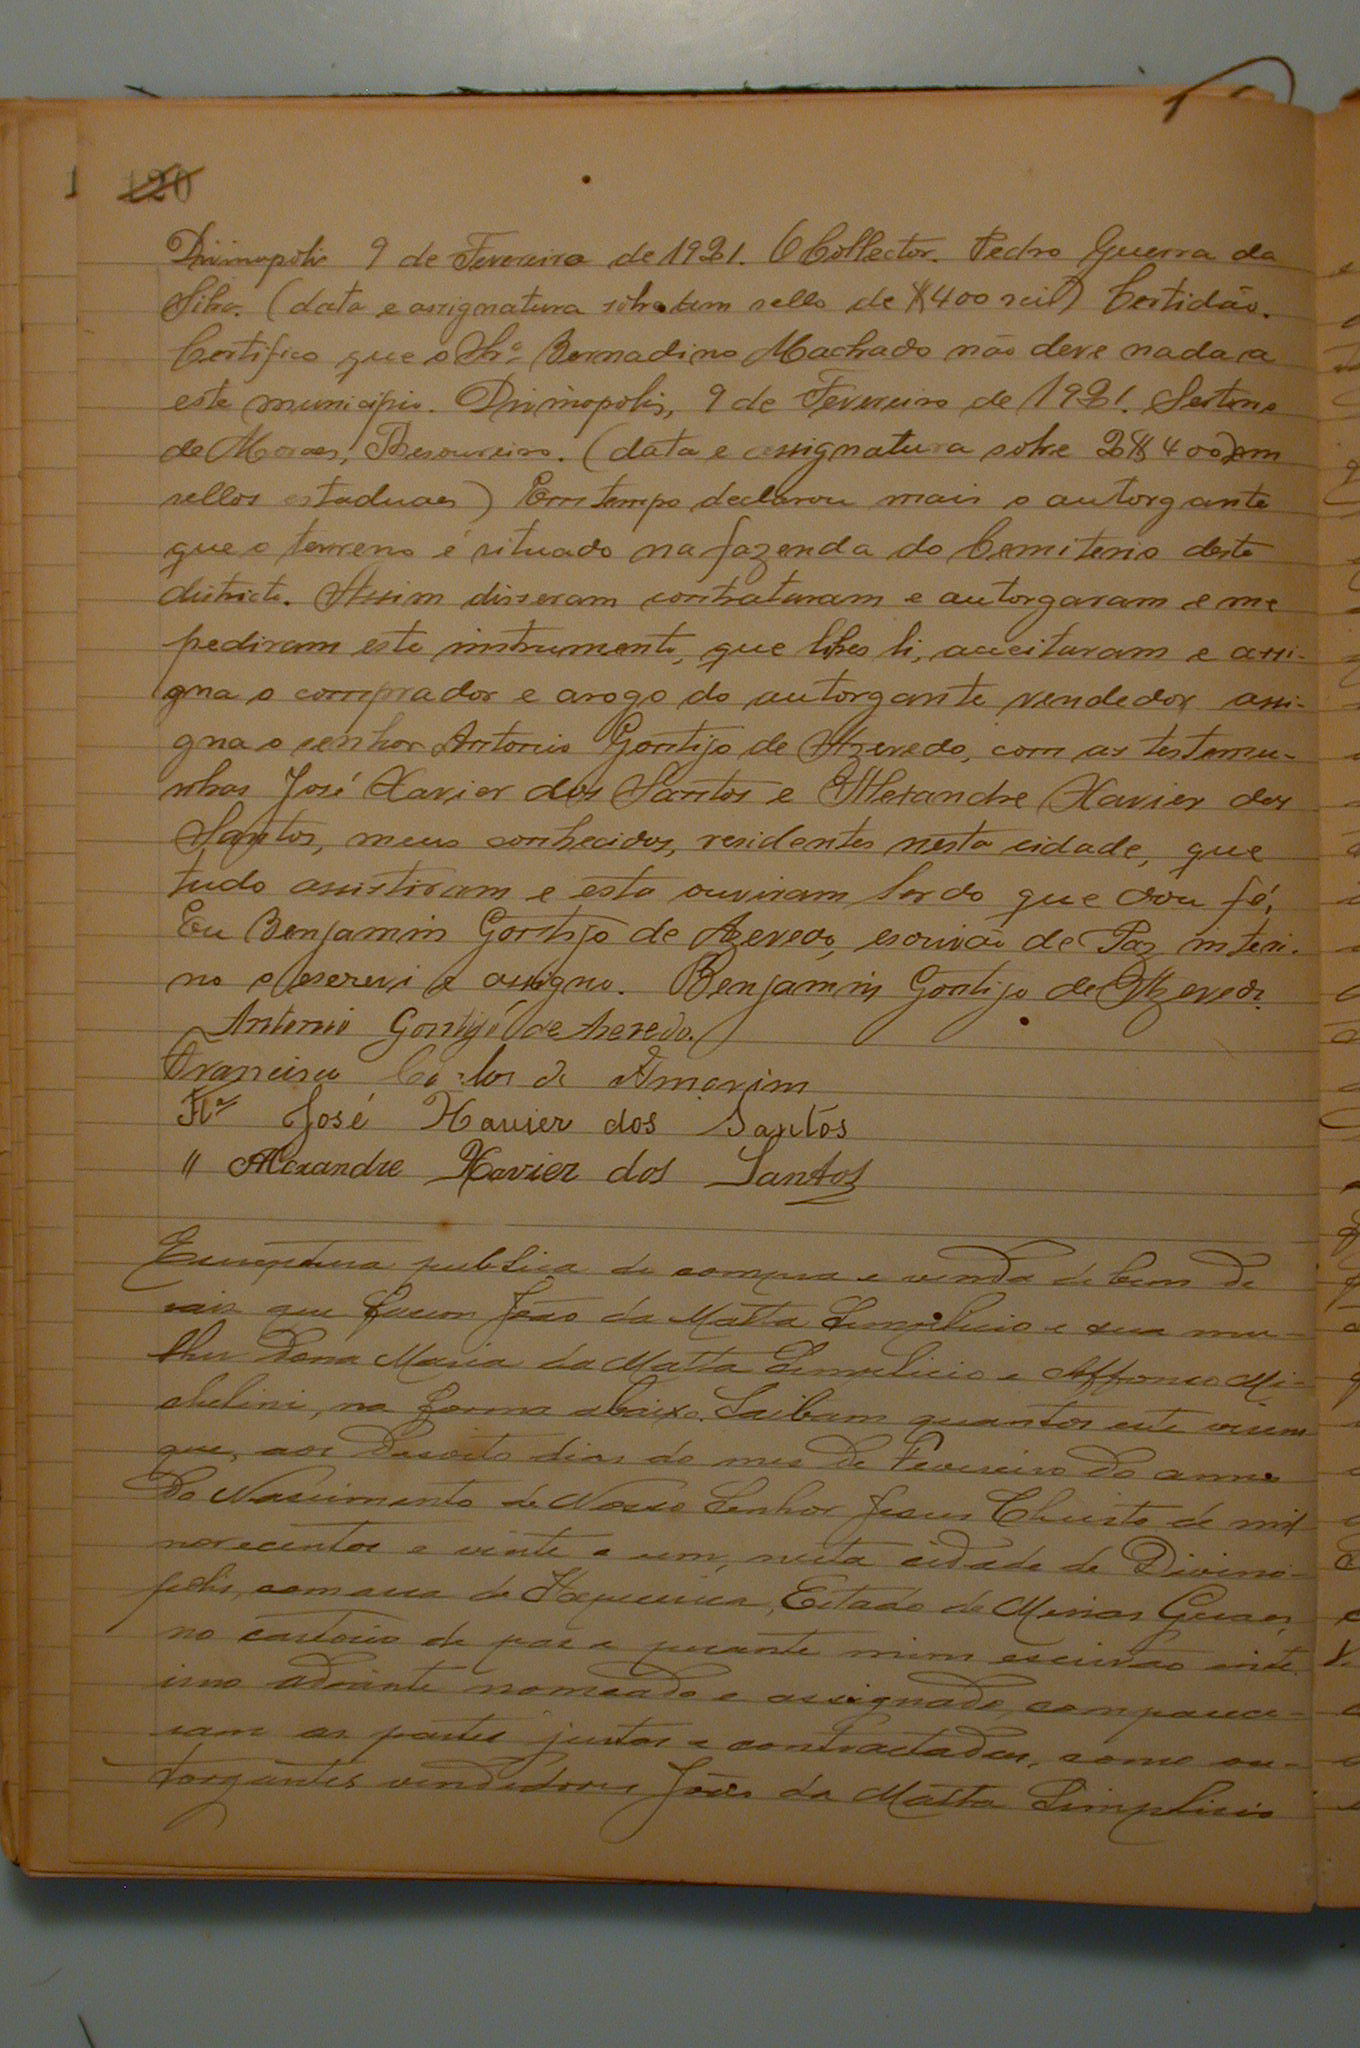 120
Divinopolis 9 de Fevereiro de 1921. O Collector. Pedro Guerra da
Silva. (data e assignatura sobre um sello de $400 reis) Certidão.
Certifico que o Snr. Bernadino Machado não deve nada a
este municipio. Divinopolis, 9 de Fevereiro de 1921. Sertorio
de Moraes, Thesoureiro. (data e assignatura sobre 2$400 em
sellos estaduaes) Em tempo declarou mais o autorgante
que o terreno é situado na fazenda do Cemiterio deste
districto. Assim disseram contrataram e autorgaram e me
pediram este instrumento, que lhes li, acceitaram e assi-
gna o comprador e arogo do autorgante vendedor assi-
gna o senhor Antonio Gontijo de Azevedo, com as testemu-
nhas José Xavier dos Santos e Alexandre Xavier dos
Santos, meus conhecidos, residentes nesta cidade, que
tudo assistiram e esta ouviram ler do que dou fé.
Eu Benjamin Gontijo de Azevedo, escrivão de Paz interi-
no o escrevi e assigno. Benjamin Gontijo de Azevedo.
Antonio Gontijo de Azevedo.
Francisco Carlos de Amorim
José Xavier dos Santos
" Alexandre Xavier dos Santos
Escriptura publica de compra e venda de bens de
raiz que fazem João da Matta Simplicio e sua mu-
lher Dona Maria da Matta Simplicio e Affonso Mi-
chelini, na forma abaixo. Saibam quantos este virem
que, aos desoito dias do mes de Fevereiro do anno
do Nascimento de Nosso Senhor Jesus Christo de mil
novecentos e vinte e um, nesta cidade de Divino-
polis, comarca de Itapecerica, Estado de Minas Geraes,
no cartorio de paz e perante mim escrivão inte
rino adiante nomeado e assignado, comparece-
ram as partes justas e contractadas, como ou-
torgantes vendedores João da Matta Simplicio